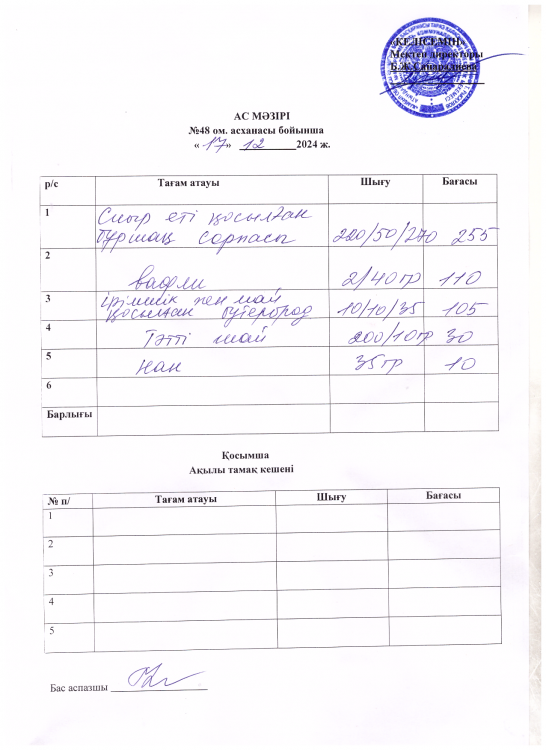 КЕЛІСЕМІН
Мектеп директоры
Б.Ж.
АС МӘЗІРІ
№48 ом. асханасы бойынша
« 17 » 12 2024 ж.
р/с Тағам атауы Шығу Бағасы
1 Сиыр еті қосылған
бұршақ сорпасы 220/50/270 255
2 вафли 2/40гр 110
3 ірімшік пен май
қосылған бутерброд 10/10/35 105
4 Тәтті шай 200/10гр 30
5 нан 35гр 10
6
Барлығы
Қосымша
Ақылы тамақ кешені
№ п/ Тағам атауы Шығу Бағасы
1
2
3
4
5
Бас аспазшы